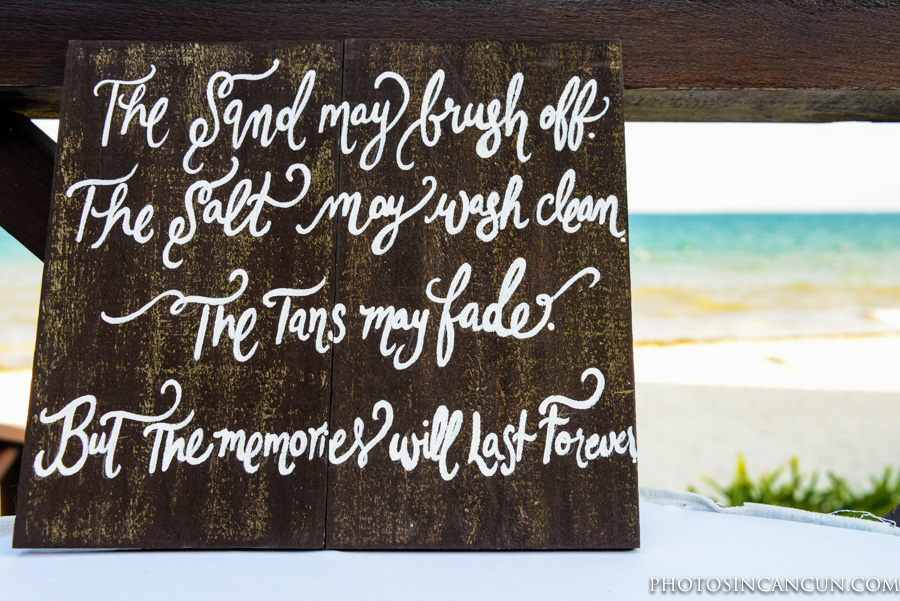 The Sand may brush off.
The Salt may wash clean.
The Tans may fade.
But The memories will Last Forever
PHOTOSINCANCUN.COM